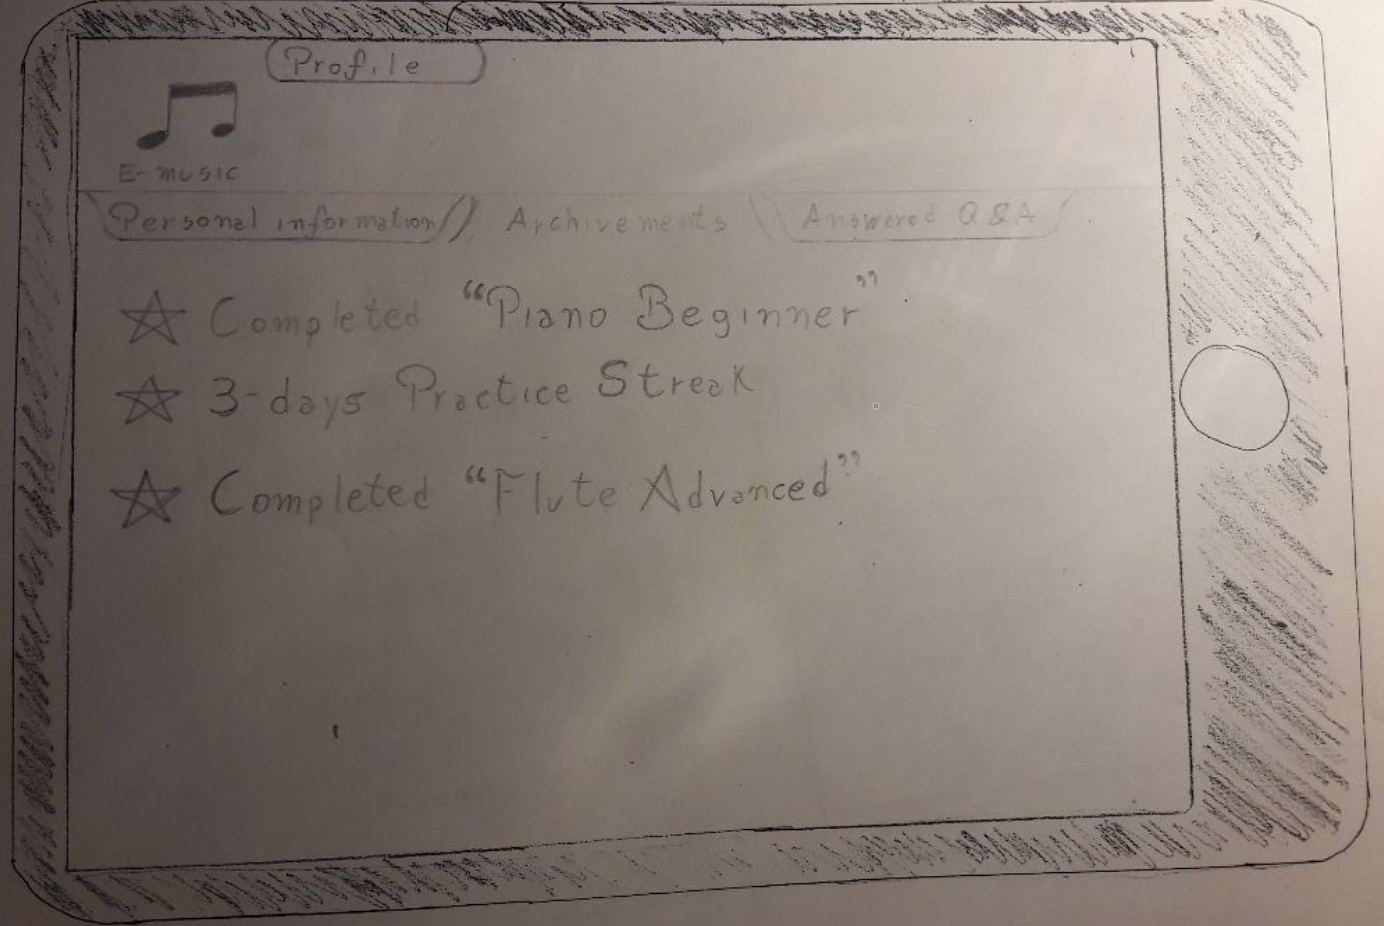 Profile
E-music
Personal information Archivements Answered Q&A
Completed “Piano Beginner”
3-days Practice Streak
Completed “Flute Advanced”